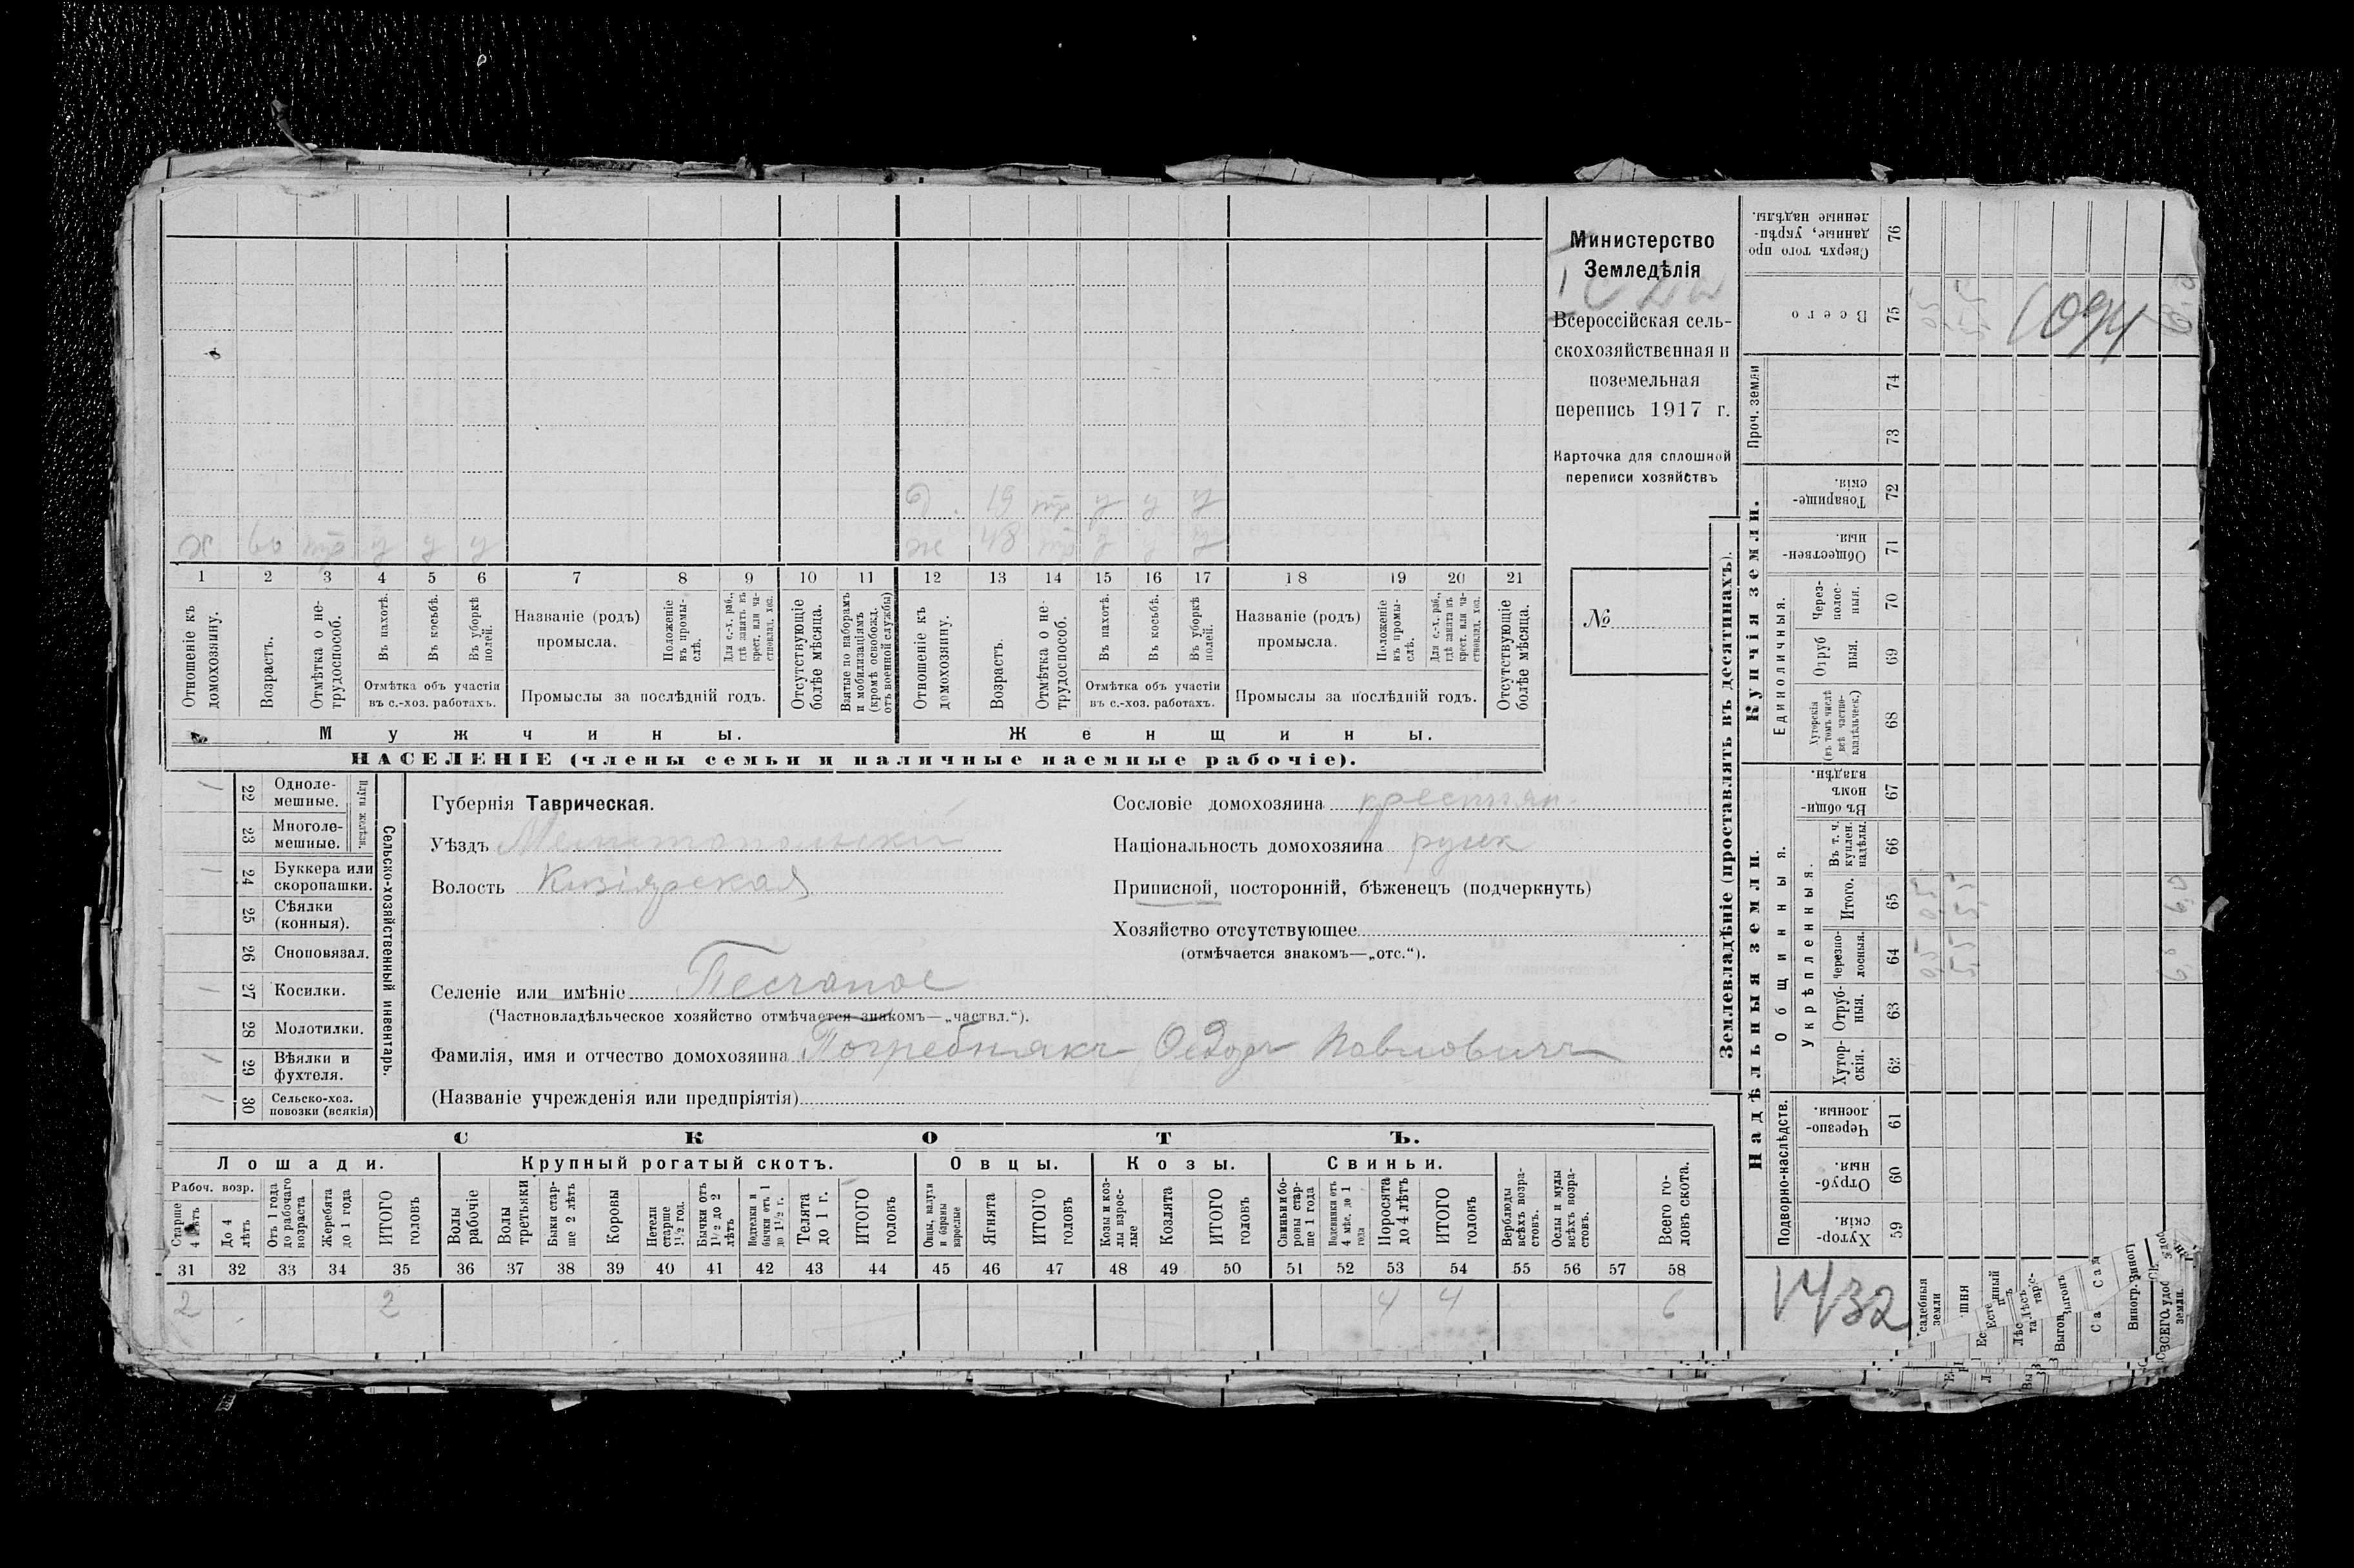 Министерство
Земледѣлія
Всероссійская сель-
скохозяйственная и
поземельная
перепись 1917 г.
Карточка для сплошной
переписи хозяйствъ
№
1 2 3 4 5 6 7 8 9 10 11 12 13 14 15 16 17 18 19 20 21
Отношеніе къ домохозяину.
Возрастъ.
Отмѣтка о не-трудоспособ.
Въ пахотѣ.
Въ косьбѣ.
Въ уборкѣ полей.
Отмѣтка объ участіи
въ с.-хоз. работахъ.
Названіе (родъ)
промысла.
Положеніе въ промы-слѣ.
Для с.-х. раб., гдѣ занятъ въ крест. или ча-стновлад. хоз.
Промыслы за послѣдній годъ.
Отсутствующіе болѣе мѣсяца.
Взятые по наборамъ и мобилизаціямъ (кромѣ освобожд. отъ военной службы)
Отношеніе къ домохозяину.
Возрастъ.
Отмѣтка о не-трудоспособ.
Въ пахотѣ.
Въ косьбѣ.
Въ уборкѣ полей.
Отмѣтка объ участіи
въ с.-хоз. работахъ.
Названіе (родъ)
промысла.
Положеніе въ промы-слѣ.
Для с.-х. раб., гдѣ занята въ крест. или ча-стновлад. хоз.
Промыслы за послѣдній годъ.
Отсутствующіе болѣе мѣсяца.
Мужчины.
Женщины.
НАСЕЛЕНІЕ (члены семьи и наличные наемные рабочіе).
Сельско-хозяйственный инвентарь.
Плуги желѣзн.
22 Одноле-мешные.
23 Многоле-мешные.
24 Буккера или скоропашки.
25 Сѣялки (конныя).
26 Сноповязал.
27 Косилки.
28 Молотилки.
29 Вѣялки и фухтеля.
30 Сельско-хоз. повозки (всякія)
Губернія Таврическая.
Уѣздъ Мелитопольскій
Волость Кизіярская
Селеніе или имѣніе Песчаное
(Частновладѣльческое хозяйство отмѣчается знакомъ—„частвл.“).
Фамилія, имя и отчество домохозяина Погребнякъ Ѳедоръ Павловичъ
(Названіе учрежденія или предпріятія)
Сословіе домохозяина крестьян.
Національность домохозяина русск
Приписной, посторонній, бѣженецъ (подчеркнуть)
Хозяйство отсутствующее
(отмѣчается знакомъ—„отс.“).
СКОТЪ.
Лошади.
Крупный рогатый скотъ.
Овцы.
Козы.
Свиньи.
Рабоч. возр.
Старше 4 лѣтъ
До 4 лѣтъ
Отъ 1 года до рабочаго возраста
Жеребята до 1 года
ИТОГО головъ
Волы рабочіе
Волы третьяки
Быки стар-ше 2 лѣтъ
Коровы
Нетели старше 1½ год.
Бычки отъ 1½ до 2 лѣтъ
Подтелки и бычки отъ 1 до 1½ г.
Телята до 1 г.
ИТОГО головъ
Овцы, валухи и бараны взрослые
Ягнята
ИТОГО головъ
Козы и коз-лы взрос-лые
Козлята
ИТОГО головъ
Свиньи и бо-ровы стар-ше 1 года
Подсвинки отъ 4 мѣс. до 1 года
Поросята до 4 лѣтъ
ИТОГО головъ
Верблюды всѣхъ возра-стовъ.
Ослы и мулы всѣхъ возра-стовъ.
Всего го-ловъ скота.
31 32 33 34 35 36 37 38 39 40 41 42 43 44 45 46 47 48 49 50 51 52 53 54 55 56 57 58
2 2 4 4 6
Землевладѣніе (проставлять въ десятинахъ).
Надѣльныя земли.
Купчія земли.
Проч. земли
Подворно-наслѣдств.
Общинныя.
Укрѣпленныя.
Единоличныя.
Хутор-скія. 59
Отруб-ныя. 60
Черезпо-лосныя. 61
Хутор-скія. 62
Отруб-ныя. 63
Черезпо-лосныя. 64
Итого. 65
Въ т. ч. куплен. надѣлы. 66
Въ общи-номъ владѣн. 67
Хуторскія (въ томъ числѣ всѣ частно-владѣльческ.) 68
Отруб ныя. 69
Через-полос-ныя. 70
Обществен-ныя. 71
Товарище-скія. 72
73
74
Всего 75
Сверхъ того про данные, укрѣп-ленные надѣлы. 76
1094
1432